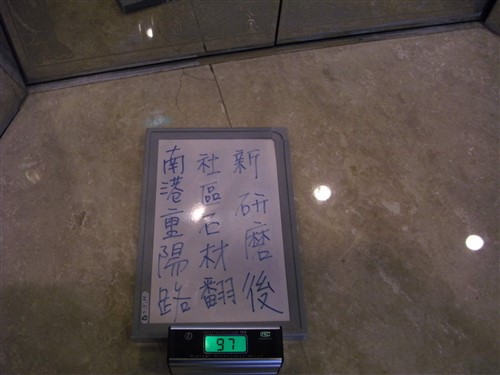 南港重陽路
社區石材翻
新 研磨後
97